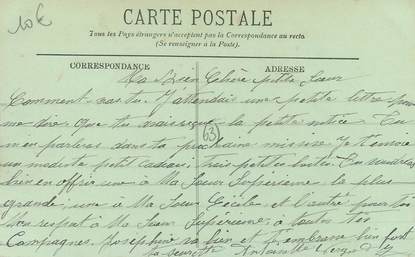 10€
CARTE POSTALE
Tous les Pays étrangers n'acceptent pas la Correspondance au recto.
(Se renseigner à la Poste).
CORRESPONDANCE
ADRESSE
Ma Bien Chère petite Sœur
Comment vas tu. J'attendais une petite lettre pour
me dire que tu avais reçu la petite notice. Tu
m'en parleras dans ta prochaine missive. Je t'envoie
un modeste petit cadeau, trois petites boites. Tu voudras
bien en offrir une à Ma Sœur Supérieure, la plus
grande, une à Ma Sœur Cécile et l'autre pour toi
Mon respect à Ma Sœur Supérieure, à toutes tes
Compagnes. Joséphine va bien et t'embrasse bien fort
ta sœurette Antoinette
63